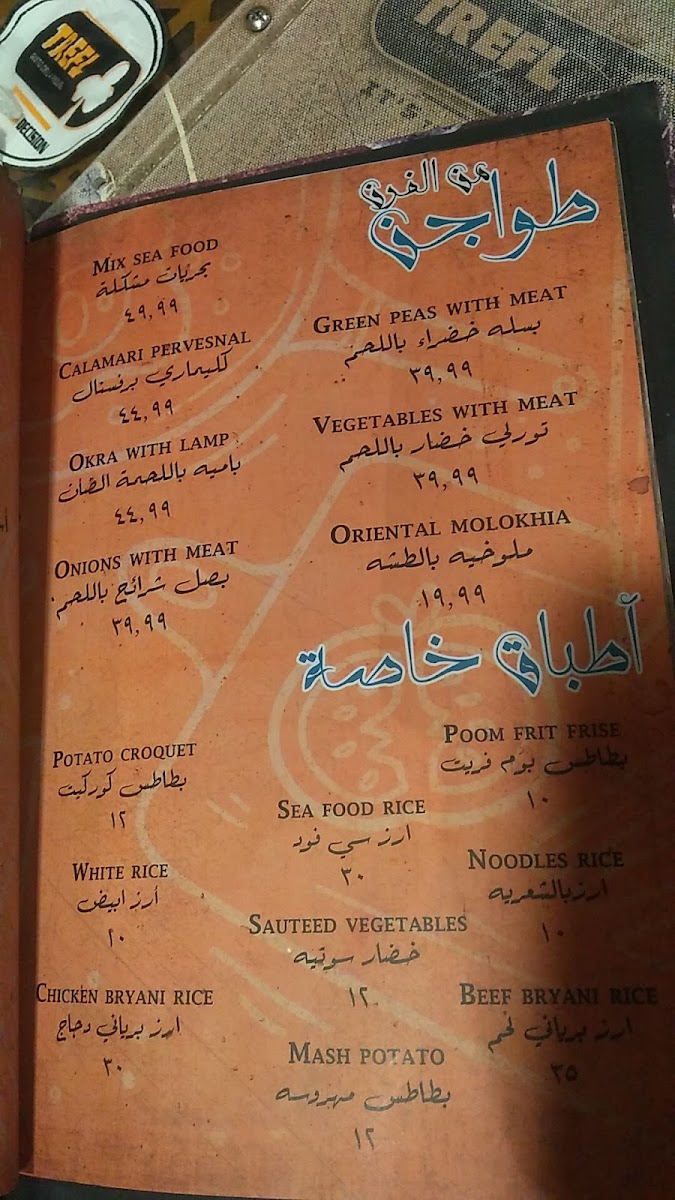 TREFL
DECISION
TREFL
IT'S
طواجن من الفرن
MIX SEA FOOD
بحريات مشكلة
٤٩,٩٩
GREEN PEAS WITH MEAT
بسله خضراء باللحم
٣٩,٩٩
CALAMARI PERVESNAL
كليماري برفنسال
٤٤,٩٩
VEGETABLES WITH MEAT
تورلي خضار باللحم
٣٩,٩٩
OKRA WITH LAMP
باميه باللحمة الضان
٤٤,٩٩
ORIENTAL MOLOKHIA
ملوخيه بالطشه
١٩,٩٩
ONIONS WITH MEAT
بصل شرائح باللحم
٣٩,٩٩
أطباق خاصة
POOM FRIT FRISE
بطاطس بوم فريت
١٠
POTATO CROQUET
بطاطس كوركيت
١٢
SEA FOOD RICE
ارز سي فود
٣٠
NOODLES RICE
ارز بالشعريه
١٠
WHITE RICE
أرز ابيض
١٠
SAUTEED VEGETABLES
خضار سوتيه
١٢
BEEF BRYANI RICE
ارز برياني لحم
٣٥
CHICKEN BRYANI RICE
ارز برياني دجاج
٣٠
MASH POTATO
بطاطس مهروسه
١٢